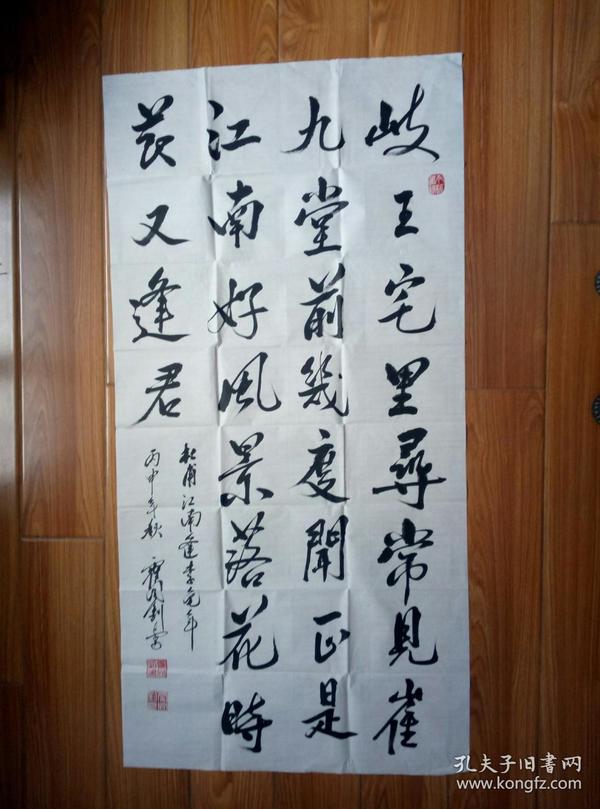 岐王宅里尋常見崔
九堂前幾度聞正是
江南好風景落花時
節又逢君
杜甫江南逢李龟年
丙申年秋
孔夫子旧書网
www.kongfz.com